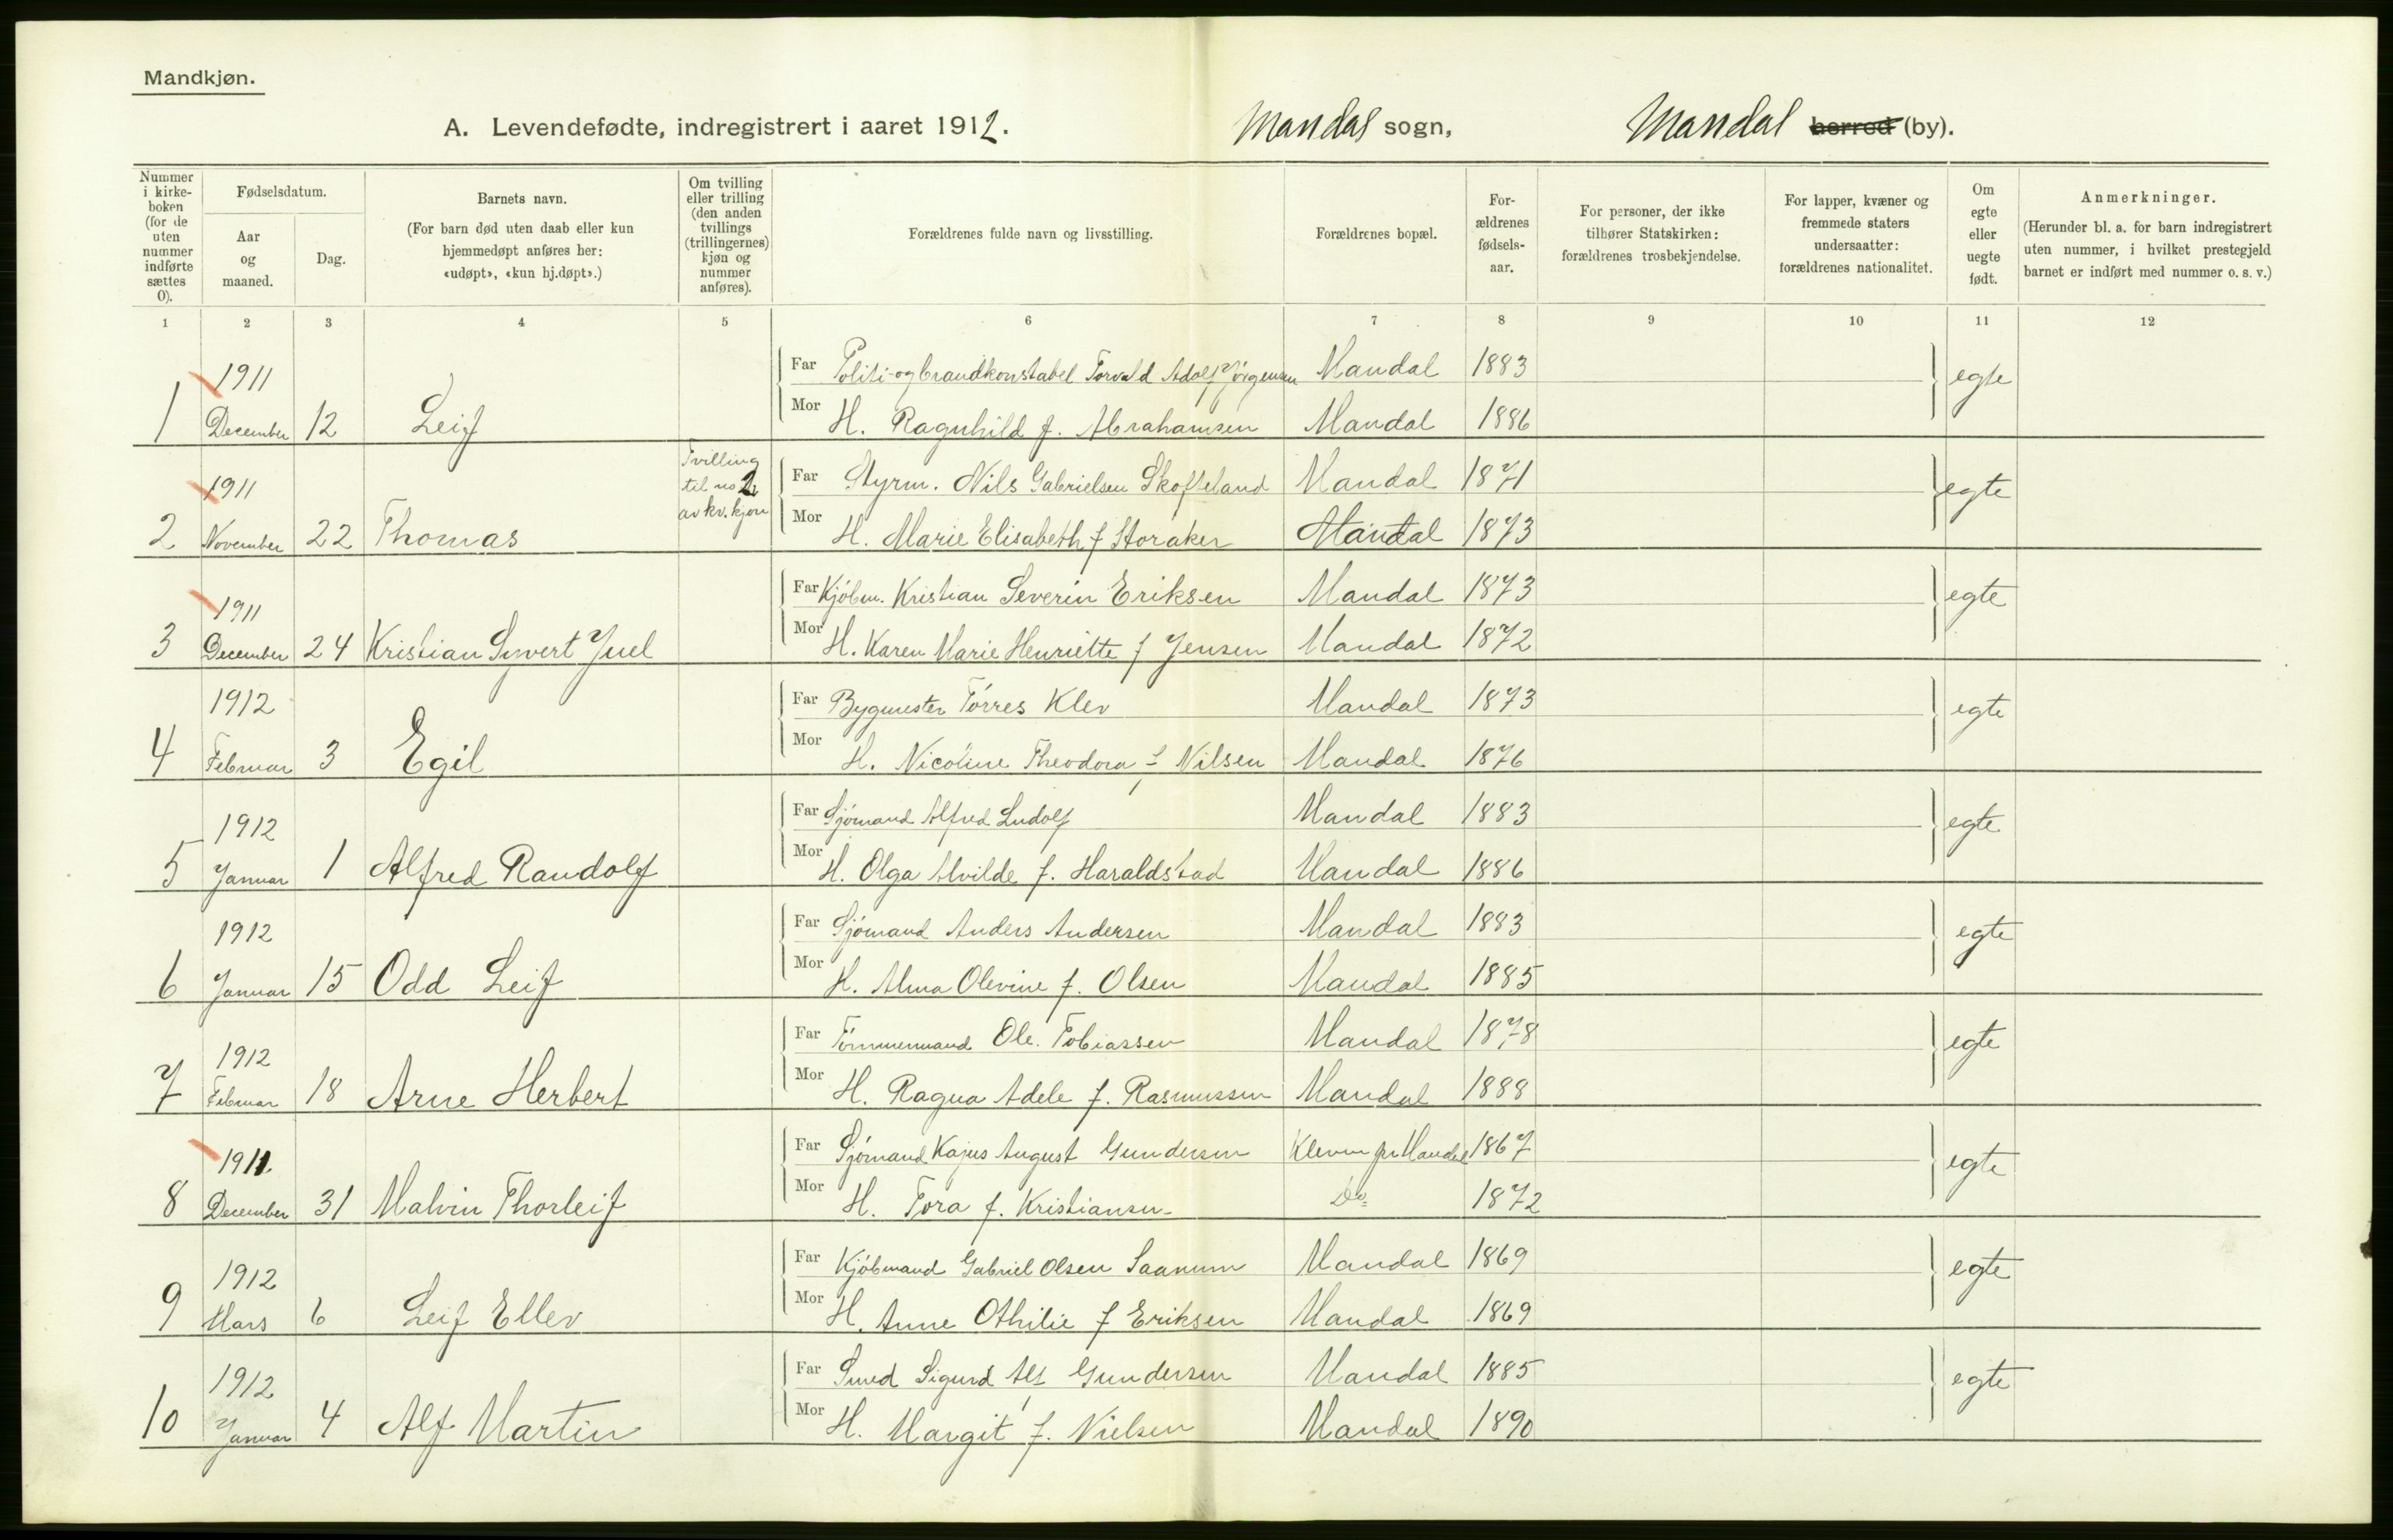 Mandkjøn.
A. Levendefødte, indregistrert i aaret 1912. Mandal sogn, Mandal herred (by).
Nummer i kirke-boken (for de uten nummer indførte sættes 0).
Fødselsdatum.
Aar og maaned.
Dag.
Barnets navn.
(For barn død uten daab eller kun hjemmedøpt anføres her: «udøpt», «kun hj.døpt».)
Om tvilling eller trilling (den anden tvillings (trillingernes) kjøn og nummer anføres).
Forældrenes fulde navn og livsstilling.
Forældrenes bopæl.
For-ældrenes fødsels-aar.
For personer, der ikke tilhører Statskirken: forældrenes trosbekjendelse.
For lapper, kvæner og fremmede staters undersaatter: forældrenes nationalitet.
Om egte eller uegte født.
Anmerkninger.
(Herunder bl. a. for barn indregistrert uten nummer, i hvilket prestegjeld barnet er indført med nummer o. s. v.)
1 2 3 4 5 6 7 8 9 10 11 12
1911 Far Politi- og brandkonstabel Torvald Adolf Jörgensen Mandal 1883 egte
1 December 12 Leif Mor H. Ragnhild f. Abrahamsen Mandal 1886
1911 Tvilling til no 2 av kv. kjøn Far Styrm. Nils Gabrielsen Skofteland Mandal 1871 egte
2 November 22 Thomas Mor H. Marie Elisabeth f Storaker Mandal 1873
1911 Far Kjöbm. Kristian Severin Eriksen Mandal 1873 egte
3 December 24 Kristian Syvert Juel Mor H. Karen Marie Henriette f Jensen Mandal 1872
1912 Far Bygmester Törres Klev Mandal 1873 egte
4 Februar 3 Egil Mor H. Nicoline Theodora f Nilsen Mandal 1876
1912 Far Sjömand Alfred Ludolf Mandal 1883 egte
5 Januar 1 Alfred Randolf Mor H. Olga Alvilde f. Haraldstad Mandal 1886
1912 Far Sjömand Anders Andersen Mandal 1883 egte
6 Januar 15 Odd Leif Mor H. Alma Olevine f. Olsen Mandal 1885
1912 Far Tömmermand Ole Tobiassen Mandal 1878 egte
7 Februar 18 Arne Herbert Mor H. Ragna Adele f. Rasmussen Mandal 1888
1911 Far Sjömand Kajus August Gundersen Kleven pr Mandal 1867 egte
8 December 31 Malvin Thorleif Mor H. Tora f. Kristiansen Do 1872
1912 Far Kjöbmand Gabriel Olsen Saanum Mandal 1869 egte
9 Mars 6 Leif Ellev Mor H. Anne Othilie f Eriksen Mandal 1869
1912 Far Smed Sigurd Alf Gundersen Mandal 1885 egte
10 Januar 4 Alf Martin Mor H. Margit f. Nielsen Mandal 1890